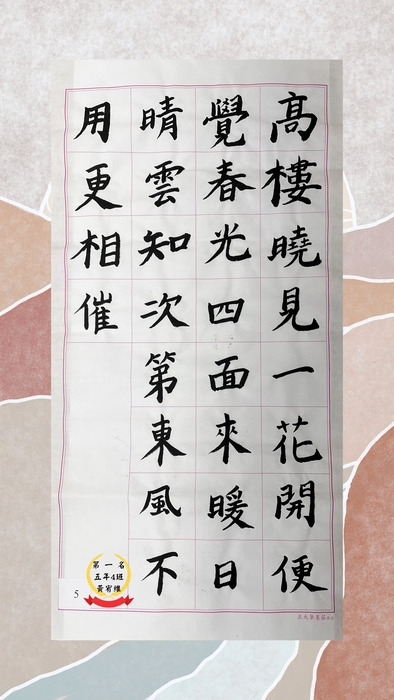 高樓曉見一花開便
覺春光四面來暖日
晴雲知次第東風不
用更相催
第一名
五年4班
黃宥維
5